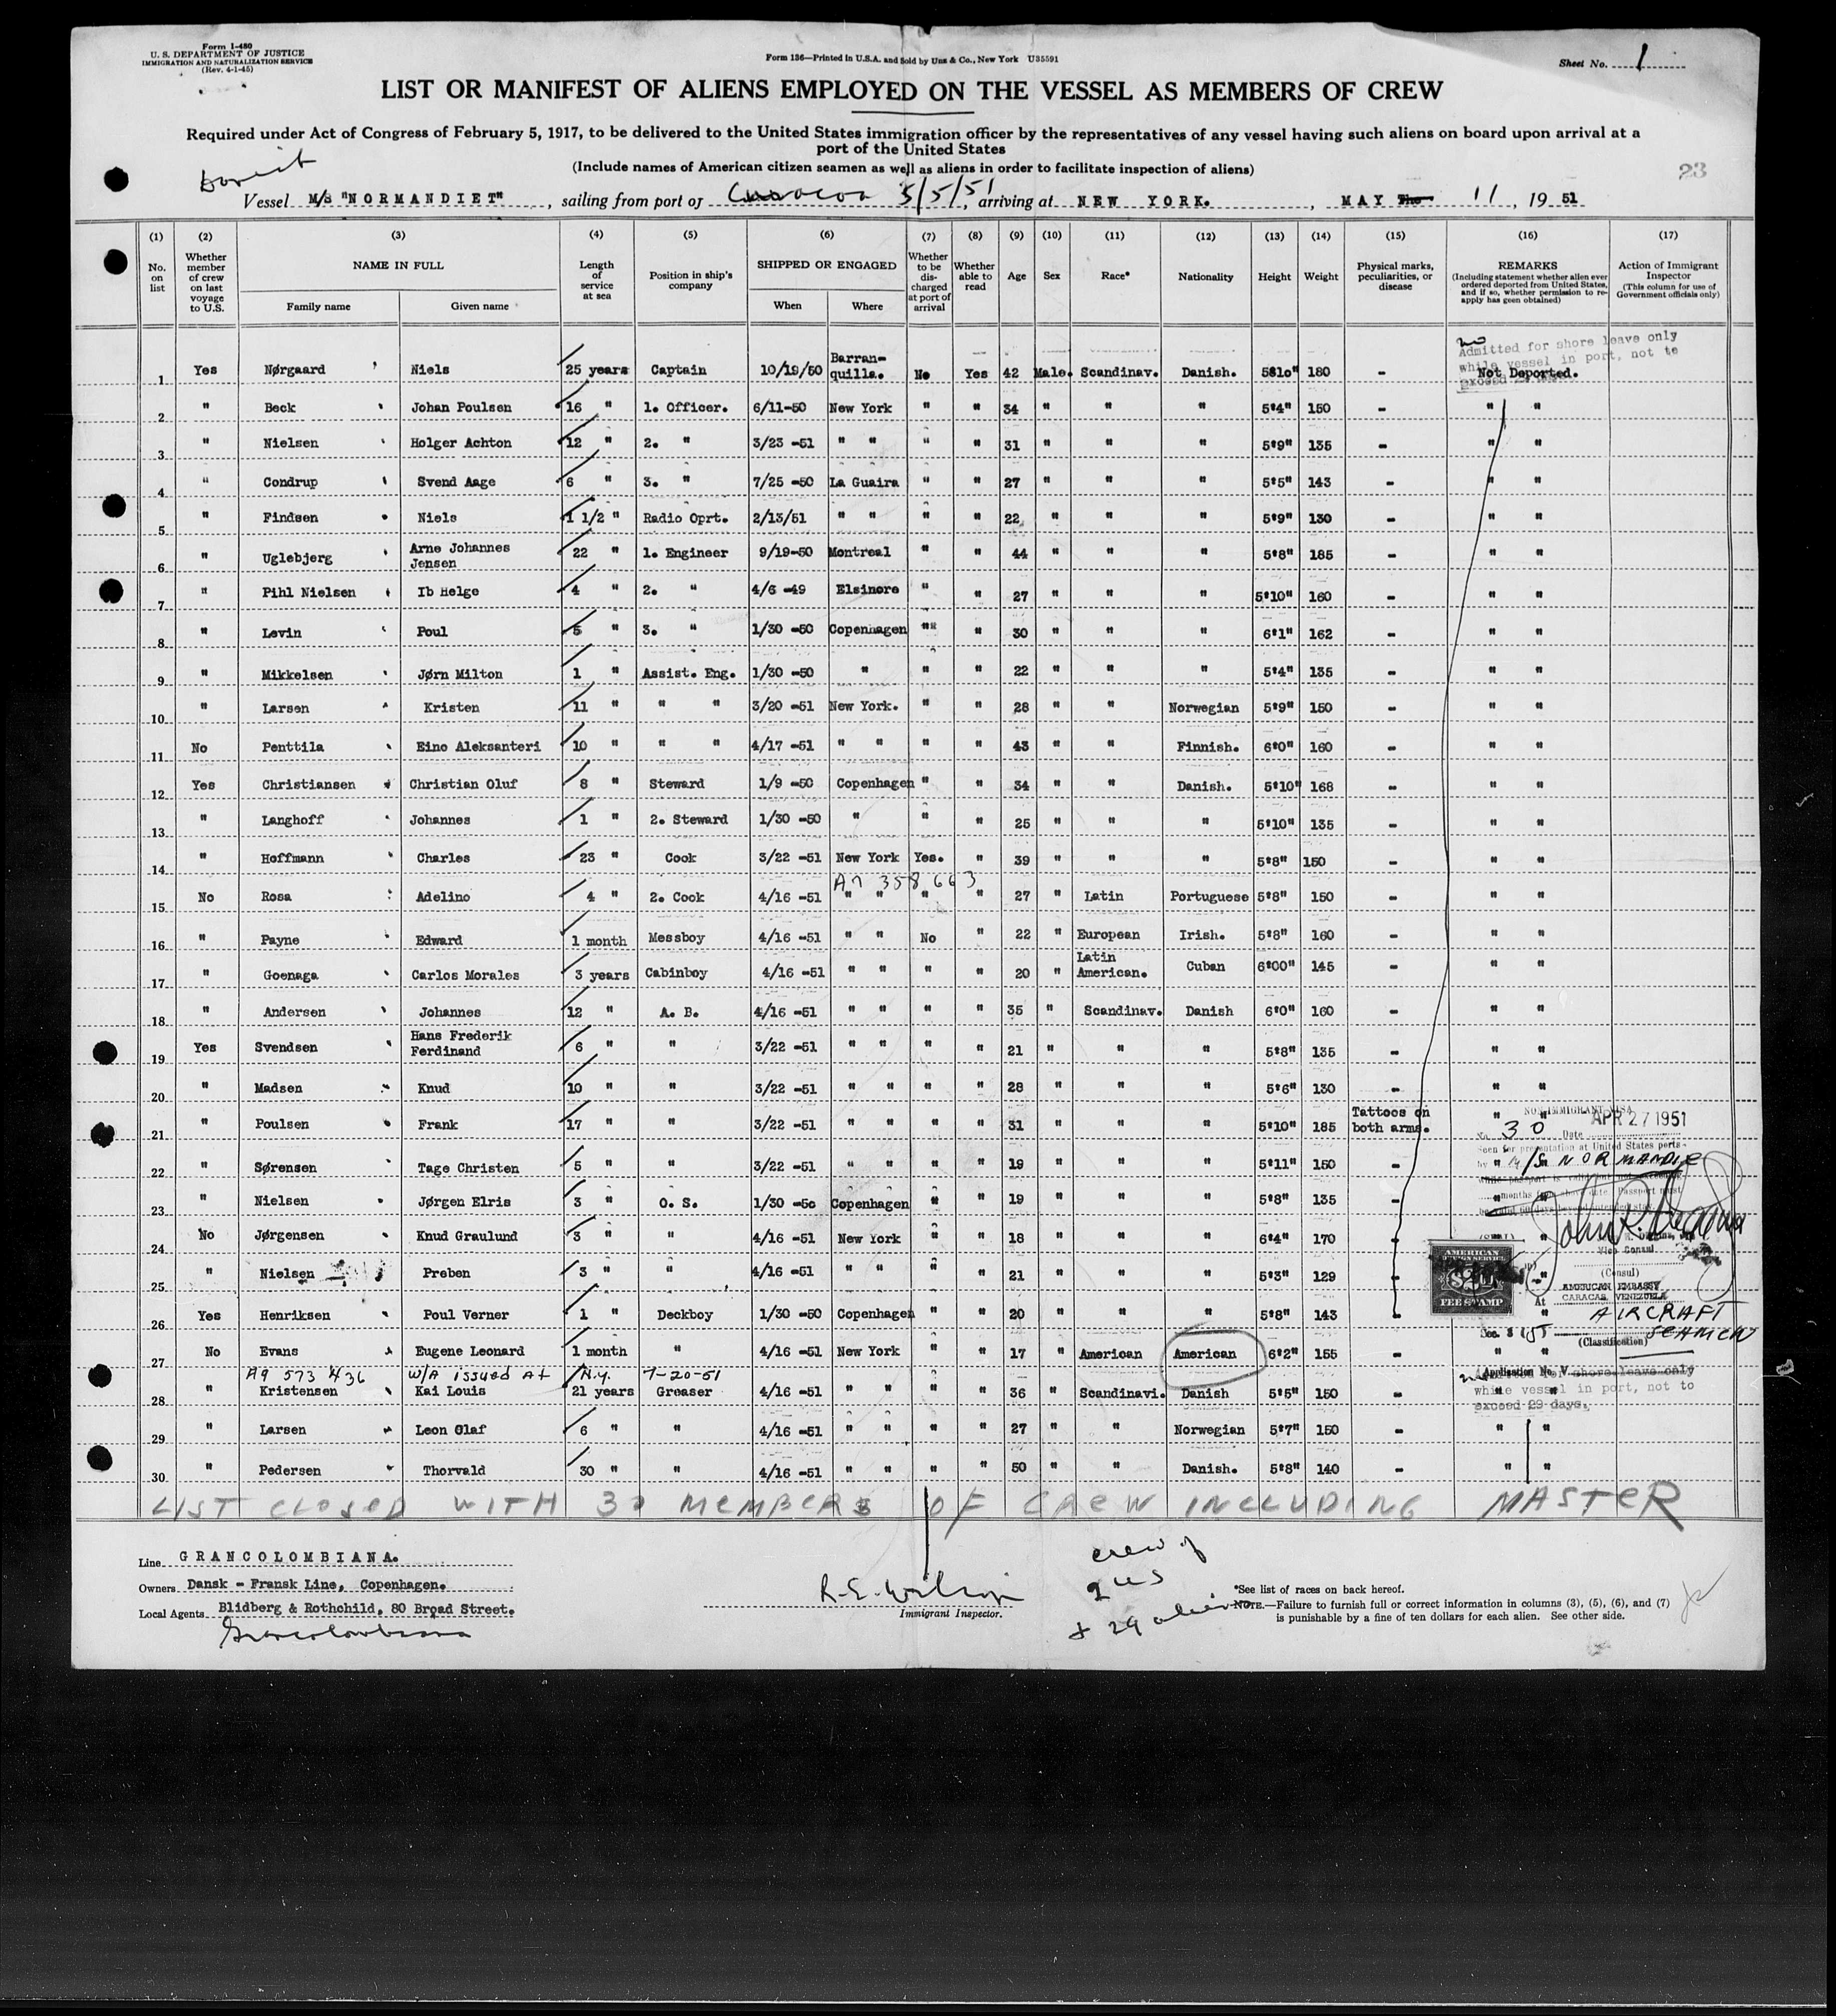 Form I-480
U. S. DEPARTMENT OF JUSTICE
IMMIGRATION AND NATURALIZATION SERVICE
(Rev. 4-1-45)
Form 136—Printed in U.S.A. and Sold by Unz & Co., New York U35591
Sheet No. 1
LIST OR MANIFEST OF ALIENS EMPLOYED ON THE VESSEL AS MEMBERS OF CREW
Required under Act of Congress of February 5, 1917, to be delivered to the United States immigration officer by the representatives of any vessel having such aliens on board upon arrival at a
port of the United States
(Include names of American citizen seamen as well as aliens in order to facilitate inspection of aliens)
23
Vessel M/S "NORMANDIET", sailing from port of Curacoa 5/5/51, arriving at NEW YORK., MAY 11, 19 51
(1) (2) (3) (4) (5) (6) (7) (8) (9) (10) (11) (12) (13) (14) (15) (16) (17)
No. on list
Whether member of crew on last voyage to U.S.
NAME IN FULL
Family name
Given name
Length of service at sea
Position in ship's company
SHIPPED OR ENGAGED
When
Where
Whether to be discharged at port of arrival
Whether able to read
Age
Sex
Race*
Nationality
Height
Weight
Physical marks, peculiarities, or disease
REMARKS
(Including statement whether alien ever ordered deported from United States, and if so, whether permission to re-apply has geen obtained)
Action of Immigrant Inspector
(This column for use of Government officials only)
no
Admitted for shore leave only
while vessel in port, not to
exceed 29 days.
1 Yes Nørgaard Niels 25 years Captain 10/19/50 Barran-quilla. No Yes 42 Male. Scandinav. Danish. 5810" 180 - Not Deported.
2 " Beck Johan Poulsen 16 " 1. Officer. 6/11-50 New York " " 34 " " " 5'4" 150 - " "
3 " Nielsen Holger Achton 12 " 2. " 3/23 -51 " " " " 31 " " " 5'9" 135 - " "
4 " Condrup Svend Aage 6 " 3. " 7/25 -50 La Guaira " " 27 " " " 5'5" 143 - " "
5 " Findsen Niels 1 1/2 " Radio Oprt. 2/13/51 " " " " 22 " " " 5'9" 130 - " "
6 " Uglebjerg Arne Johannes Jensen 22 " 1. Engineer 9/19-50 Montreal " " 44 " " " 5'8" 185 - " "
7 " Pihl Nielsen Ib Helge 4 " 2. " 4/6 -49 Elsinore " " 27 " " " 5'10" 160 - " "
8 " Levin Poul 5 " 3. " 1/30 -50 Copenhagen " " 30 " " " 6'1" 162 - " "
9 " Mikkelsen Jørn Milton 1 " Assist. Eng. 1/30 -50 " " " 22 " " " 5'4" 135 - " "
10 " Larsen Kristen 11 " " " 3/20 -51 New York. " " 28 " " Norwegian 5'9" 150 - " "
11 No Penttila Eino Aleksanteri 10 " " " 4/17 -51 " " " " 43 " " Finnish. 6'0" 160 - " "
12 Yes Christiansen Christian Oluf 8 " Steward 1/9 -50 Copenhagen " " 34 " " Danish. 5'10" 168 - " "
13 " Langhoff Johannes 1 " 2. Steward 1/30 -50 " " " 25 " " " 5'10" 135 - " "
14 " Hoffmann Charles 23 " Cook 3/22 -51 New York Yes. " 39 " " " 5'8" 150 - " "
A7 358 663
15 No Rosa Adelino 4 " 2. Cook 4/16 -51 " " " " 27 " Latin Portuguese 5'8" 150 - " "
16 " Payne Edward 1 month Messboy 4/16 -51 " " No " 22 " European Irish. 5'8" 160 - " "
17 " Goenaga Carlos Morales 3 years Cabinboy 4/16 -51 " " " " 20 " Latin American. Cuban 6'00" 145 - " "
18 " Andersen Johannes 12 " A. B. 4/16 -51 " " " " 35 " Scandinav. Danish 6'0" 160 - " "
19 Yes Svendsen Hans Frederik Ferdinand 6 " " 3/22 -51 " " " " 21 " " " 5'8" 135 - " "
20 " Madsen Knud 10 " " 3/22 -51 " " " " 28 " " " 5'6" 130 - " "
21 " Poulsen Frank 17 " " 3/22 -51 " " " " 31 " " " 5'10" 185 Tattoos on both arms. " "
22 " Sørensen Tage Christen 5 " " 3/22 -51 " " " " 19 " " " 5'11" 150 - "
23 " Nielsen Jørgen Elris 3 " O. S. 1/30 -50 Copenhagen " " 19 " " " 5'8" 135 - "
24 No Jørgensen Knud Graulund 3 " " 4/16 -51 New York " " 18 " " " 6'4" 170 - "
25 " Nielsen Preben 3 " " 4/16 -51 " " " " 21 " " " 5'3" 129 - "
26 Yes Henriksen Poul Verner 1 " Deckboy 1/30 -50 Copenhagen " " 20 " " " 5'8" 143 - "
27 No Evans Eugene Leonard 1 month " 4/16 -51 New York " " 17 " American American 6'2" 155 " "
A9 573 436 W/A issued At N.Y. 7-20-51
28 " Kristensen Kai Louis 21 years Greaser 4/16 -51 " " " " 36 " Scandinavi. Danish 5'5" 150 - " "
29 " Larsen Leon Olaf 6 " " 4/16 -51 " " " " 27 " " Norwegian 5'7" 150 - " "
30 " Pedersen Thorvald 30 " " 4/16 -51 " " " " 50 " " Danish. 5'8" 140 - " "
NON-IMMIGRANT VISA
No. 30 Date APR 27 1951
Seen for presentation at United States ports
by M/S NORMANDIE
months
Passport must
Vice Consul
AMERICAN
FOREIGN SERVICE
FEE STAMP
(Consul)
At AMERICAN EMBASSY
CARACAS, VENEZUELA
AIRCRAFT
SEAMEN
Sec. 3 (5)
(Classification)
Application No. V
shore leave only
while vessel in port, not to
exceed 29 days.
LIST CLOSED WITH 30 MEMBERS OF CREW INCLUDING MASTER
Line GRANCOLOMBIANA.
Owners Dansk - Fransk Line, Copenhagen.
Local Agents Blidberg & Rothchild, 80 Broad Street.
Grancolombiana
R. E. Wilson
Immigrant Inspector.
crew of
1 US
+ 29 aliens
*See list of races on back hereof.
NOTE.—Failure to furnish full or correct information in columns (3), (5), (6), and (7)
is punishable by a fine of ten dollars for each alien. See other side.